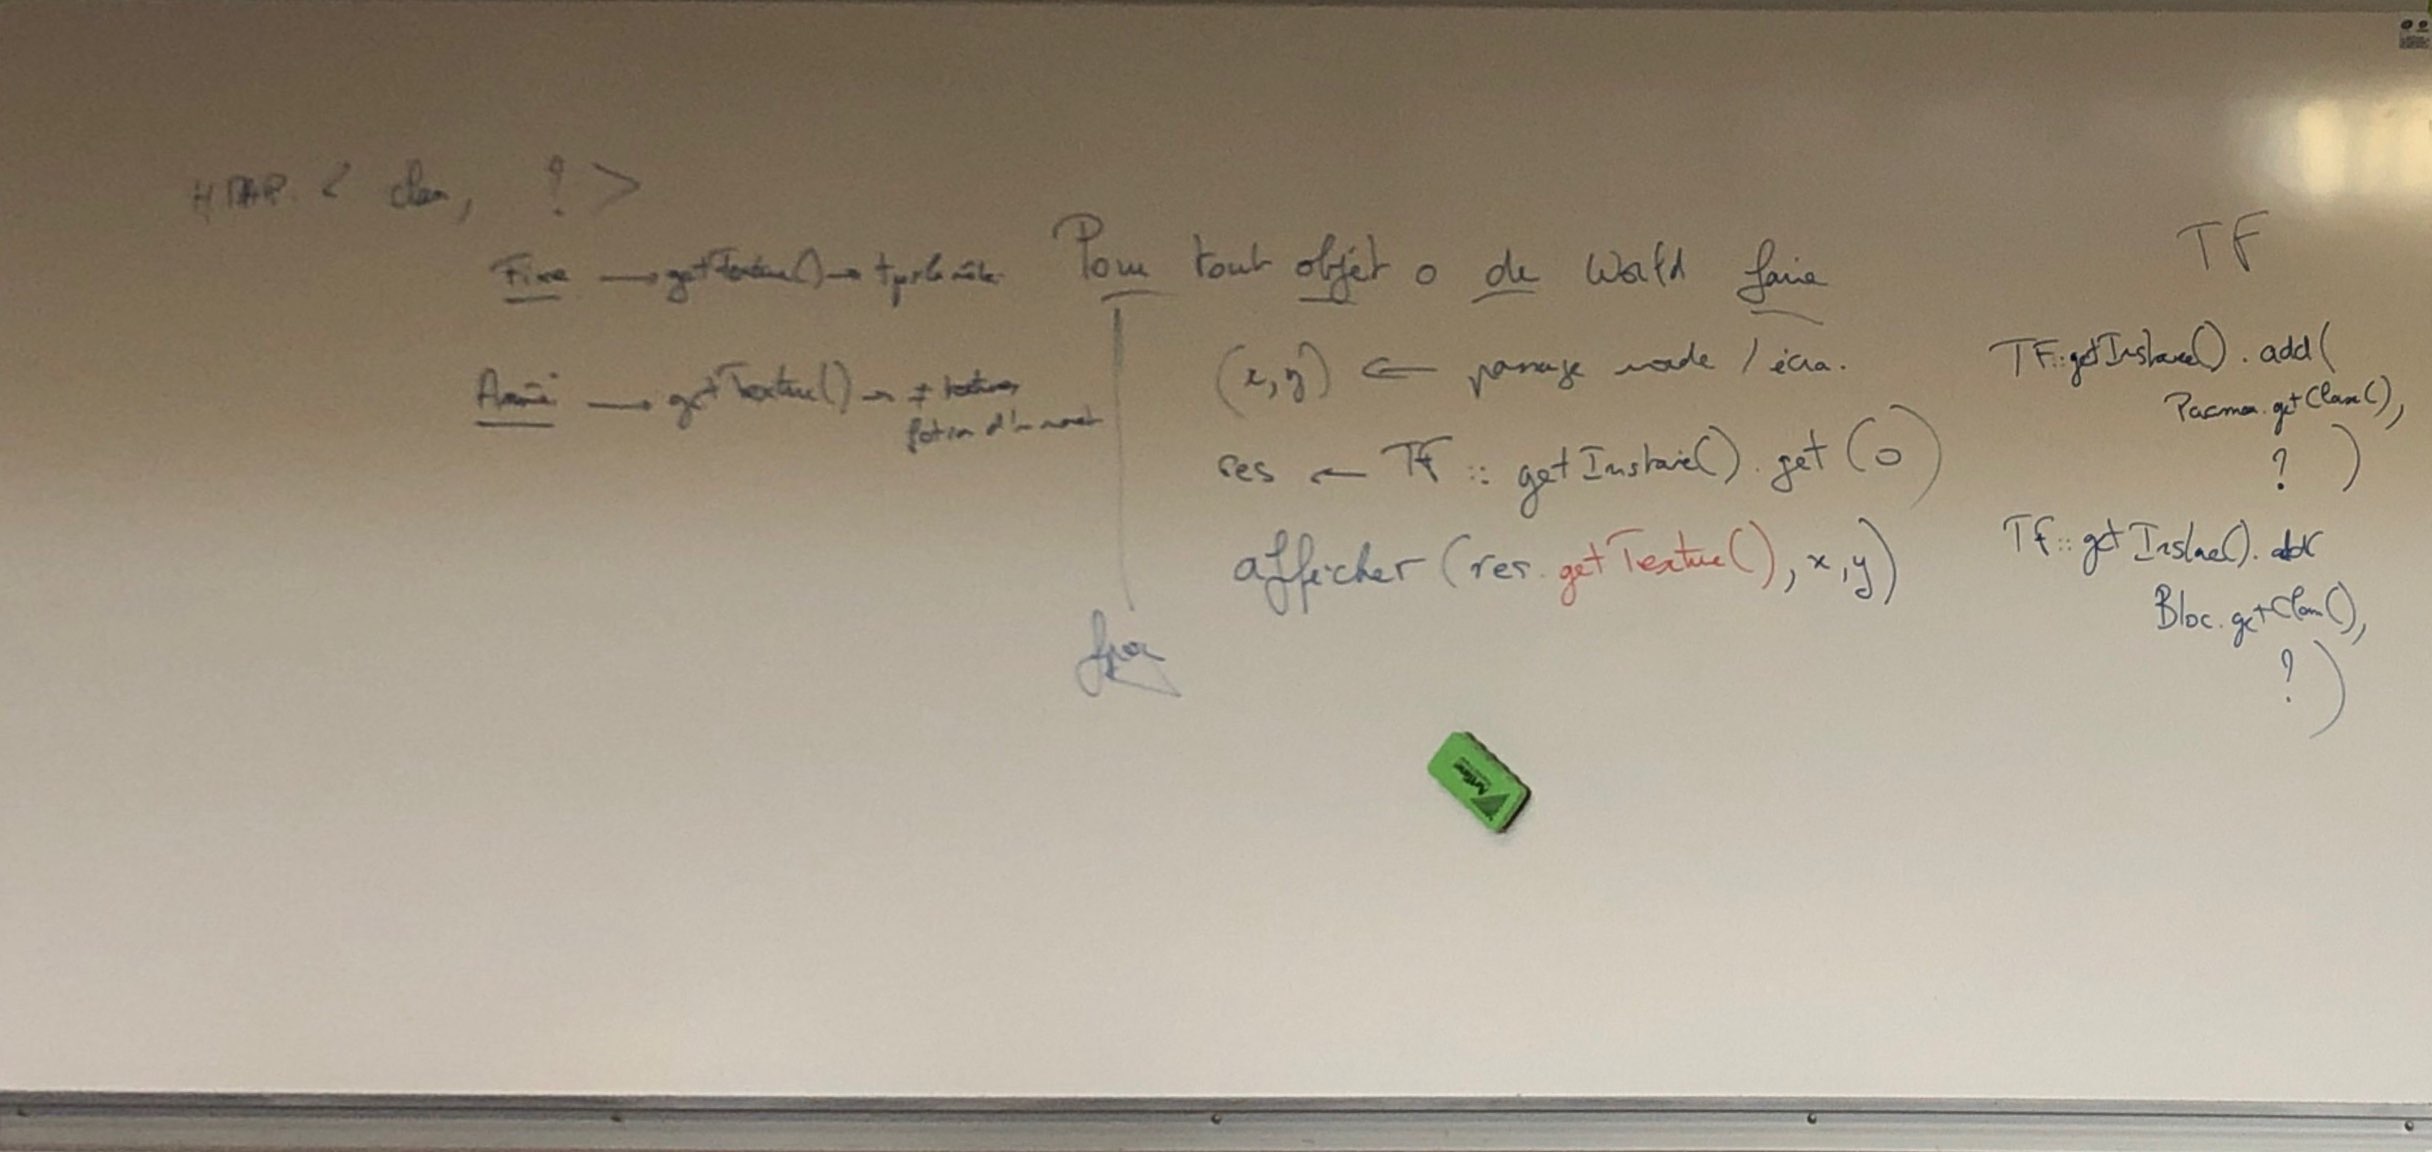 HMAP < class, ? >
Fixe → getTexture() → tjrs la même
Animé → getTexture() → ≠ textures
fction d'un
Pour tout objet o de World faire
(x,y) ← passage monde / écran.
res ← TF :: getInstance(). get (o)
afficher (res. getTexture(), x,y)
TF
TF::getInstance(). add(
Pacman. getClass(),
? )
TF:: getInstance(). add(
Bloc. getClass(),
? )